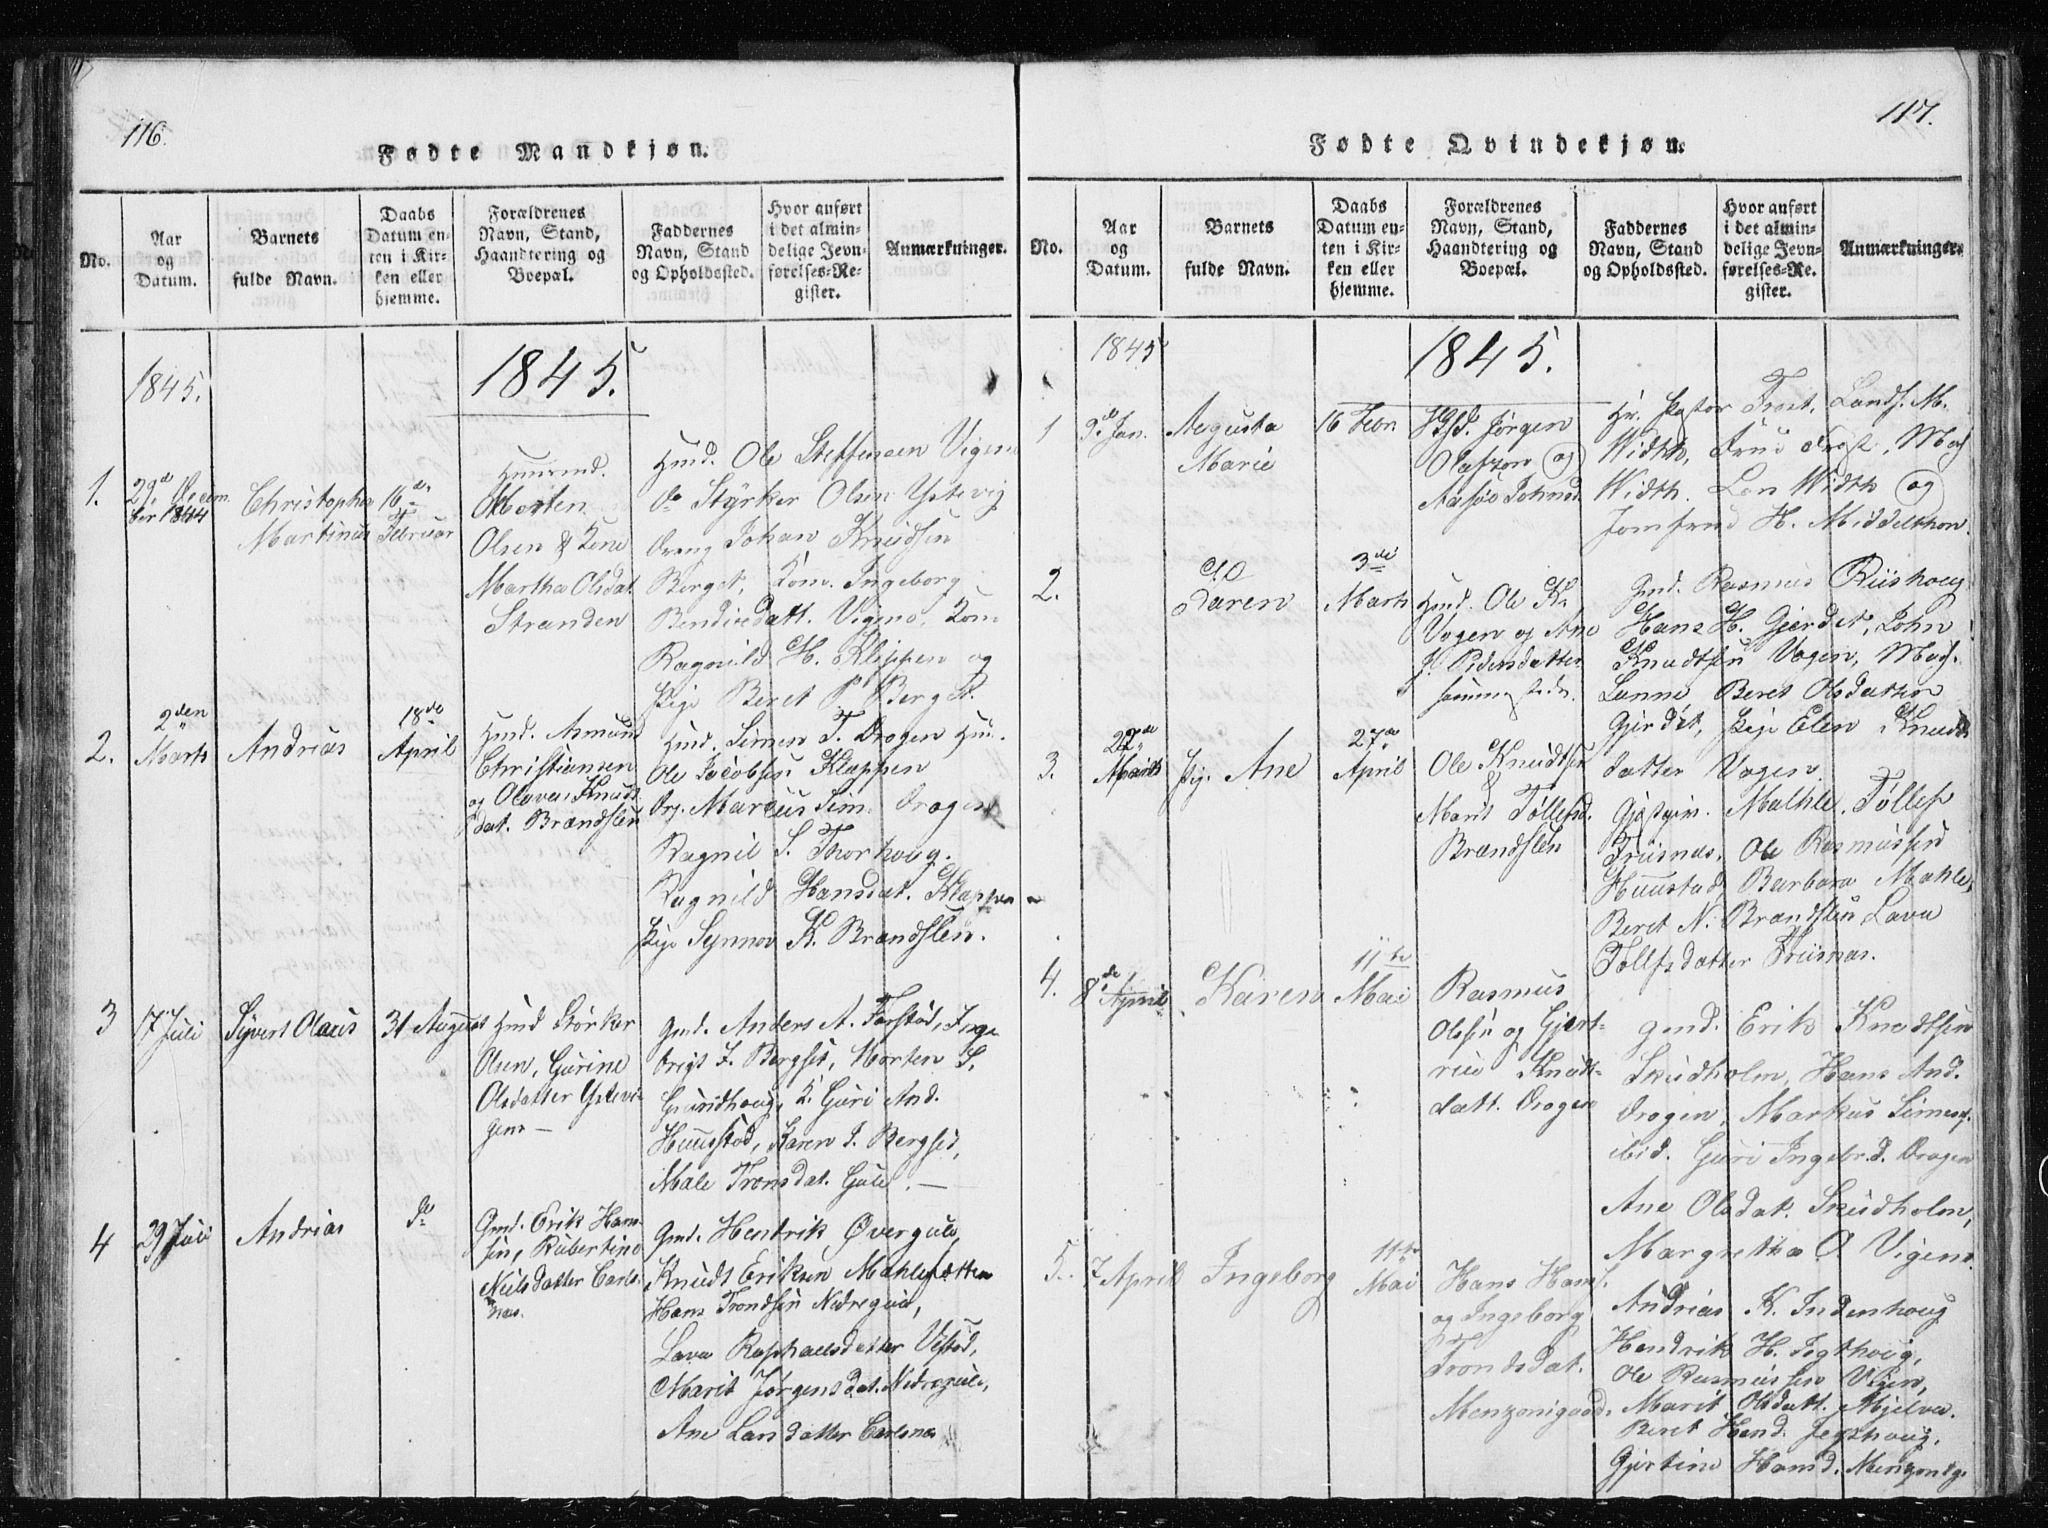 116.
Fødte Mandkjøn.
No.
Aar
og
Datum.
Barnets
fulde Navn.
Daabs
Datum en-
ten i Kir-
ken eller
hjemme.
Forældrenes
Navn, Stand,
Haandtering og
Boepæl.
Faddernes
Navn, Stand
og Opholdssted.
Hvor anført
i det almin-
delige Jevn-
førelses-Re-
gister.
Anmærkninger.
1845.
1845.
1.
29de Decem
ber 1844
Christopher
Martinus
16de
Februar
Huusmd.
Morten
Olsen & Kone
Martha Olsdat.
Stranden
Huusmd. Ole Steffensen Vigen
do Styrker Olsen Ystevig
Dreng Johan Knudsen
Berget, Kone Ingeborg
Bendixdatt. Vigen, Kone
Ragnild H. Kleppen og
Pige Beret P. Berget.
2.
2den
Marts
Andreas
18de
April
Huusmd. Asmund
Christiansen
og Olava Knuds
dat. Brændslen
Huusmd. Simen T. Drogen Huus.
Ole Jacobsen Klappen
Drg. Marcus Sim. Drogen
Ragnil S. Thorhoug.
Ragnild Hansdat. Klappen
Pige Synnov K. Brændslen.
3
17 Juli
Syvert Olaus
31 August
Huusmd Størker
Olsen, Gurine
Olsdatter Ystevi-
gen —
Gmd. Anders A. Farstad, Inge
brigt J. Bergset, Morten S.
Gruridhoug, K. Guri And.
Huustad, Karen J. Bergset,
Male Tronsdat. Gule. —
4
29 Juli
Andreas
do
Gmd. Erik Han-
sen, Rubertine
Nielsdatter Carls-
næs.
Gmd. Hendrik Øvergule,
Knudt Eriksen Mahlesætter
Hans Trondsen Nedregule,
Lava Raphaelsdatter Vestad,
Marit Jørgensdat. Nedregule,
Ane Larsdatter Carlsnæs
117.
Fødte Qvindekjøn.
No.
Aar
og
Datum.
Barnets
fulde Navn.
Daabs
Datum en-
ten i Kir-
ken eller
hjemme.
Forældrenes
Navn, Stand,
Haandtering og
Boepæl.
Faddernes
Navn, Stand
og Opholdssted.
Hvor anført
i det almin-
delige Jevn-
førelses-Re-
gister.
Anmærkninger.
1845
1845.
1
9de Jan.
Augusta
Marie
16 Febr
Jørgen
Olafson og
Hr. Pastor Frost, Landh. M.
Width, Frue Frost, Mad
Width. Lon Width og
Jomfrue H. Middelthon.
2.
Karen
3die
Marts
Huusmd. Ole K.
Vogen og Ane
J. Pedersdatter
sammesteds.
Gmd. Rasmus Riishoug
Hans H. Gjerdet, John
Knudtsen Vogen, Mad.
Lunne Beret Olsdatter
Gjerdet, Pige Elen Knuds
datter Vogen.
3.
22de
Marts
Pig. Ane
27de
April
Ole Knudtsen
&
Marit Tøllefsd.
Brændslen
Gjæstgiv. Mahle, Tøllef
Friisnæs, Ole Rasmussen
Huustad, Barbara Mahle,
Beret N. Brændslen Lava
Tollefsdatter Friisnæs.
4.
8de April
Karen
11te
Mai
Rasmus
Olsen og Gjert-
rue Knuds-
datt. Drogen
gmd. Erik Knudtsen
Skudholm, Hans And.
Drogen, Markus Simens.
ibid. Guri Ingebr.d. Drogen
Ane Olsdat. Skudholm,
Margretha O. Vigen.
5.
7 April
Ingeborg
11te
Mai
Hans Hans.
og Ingeborg
Trondsdat.
Menzonigaard.
Andreas K. Indenhoug
Hendrik H. Jegthoug,
Ole Rasmussen Vigen,
Marit Olsdatt. Mjelva.
Beret Hend. Jegthoug,
Gjertine Hansd. Menzonig.